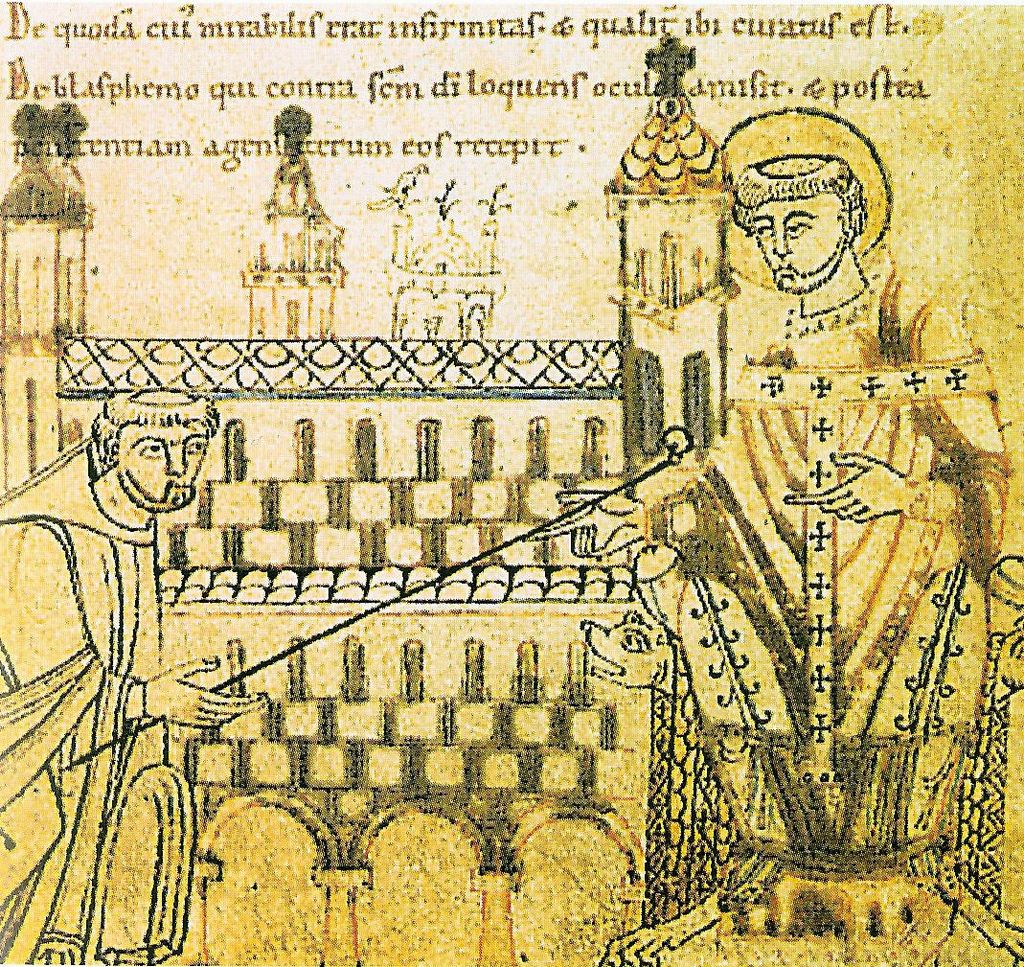 De quodā cuī mirabilis erat infirmitas. & qualit̄ ibi curatus est.
De blasphemo qui contra sc̄m dī loquens oculos amisit. & postea
penitentiam agens iterum eos recepit.